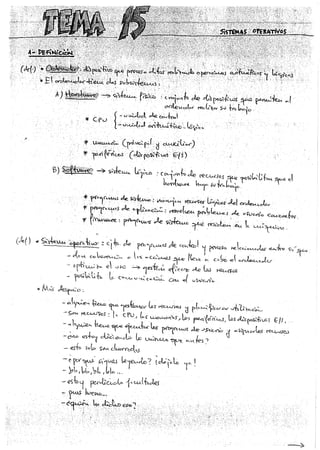 TEMA 15
SISTEMAS OPERATIVOS
1- DEFINICIÓN
(def) • Ordenador: dispositivo que procesa datos realizando operaciones aritméticas y lógicas
• El ordenador tiene dos subsistemas:
A) Hardware → sistema físico: conjunto de dispositivos que permiten al
ordenador realizar su trabajo
* CPU { - unidad de control
- unidad aritmético-lógica
* memoria (principal y auxiliar)
* periféricos (dispositivos E/S)
B) Software → sistema lógico: conjunto de recursos que posibilitan que el
hardware haga su trabajo.
* programas de sistema: manejan recursos lógicos del ordenador
* programas de aplicación: resuelven problemas de usuario concretos.
* firmware: programas de sistema que residen en la máquina.
(def) • Sistema operativo: cjto de programas de control y puesta relacionados entre sí que
- dan coherencia a las acciones que lleva a cabo el ordenador
- optimiza el uso → gestión eficaz de los recursos
- posibilita la comunicación con el usuario
• Más despacio:
- alguien tiene que gestionar los recursos y planificar su utilización.
- son recursos: la CPU, las memorias, los periféricos, los dispositivos E/S.
- alguien tiene que ejecutar los programas de usuario y asignarles recursos
- ¿no estoy diciendo lo mismo que antes?
- esto solo son chorradas
- ¿por qué sigues leyendo? ¡déjalo ya!
- bla, bla, bla, bla...
- estoy perdiendo facultades
- pues bueno...
- ¿quién ha dicho eso?